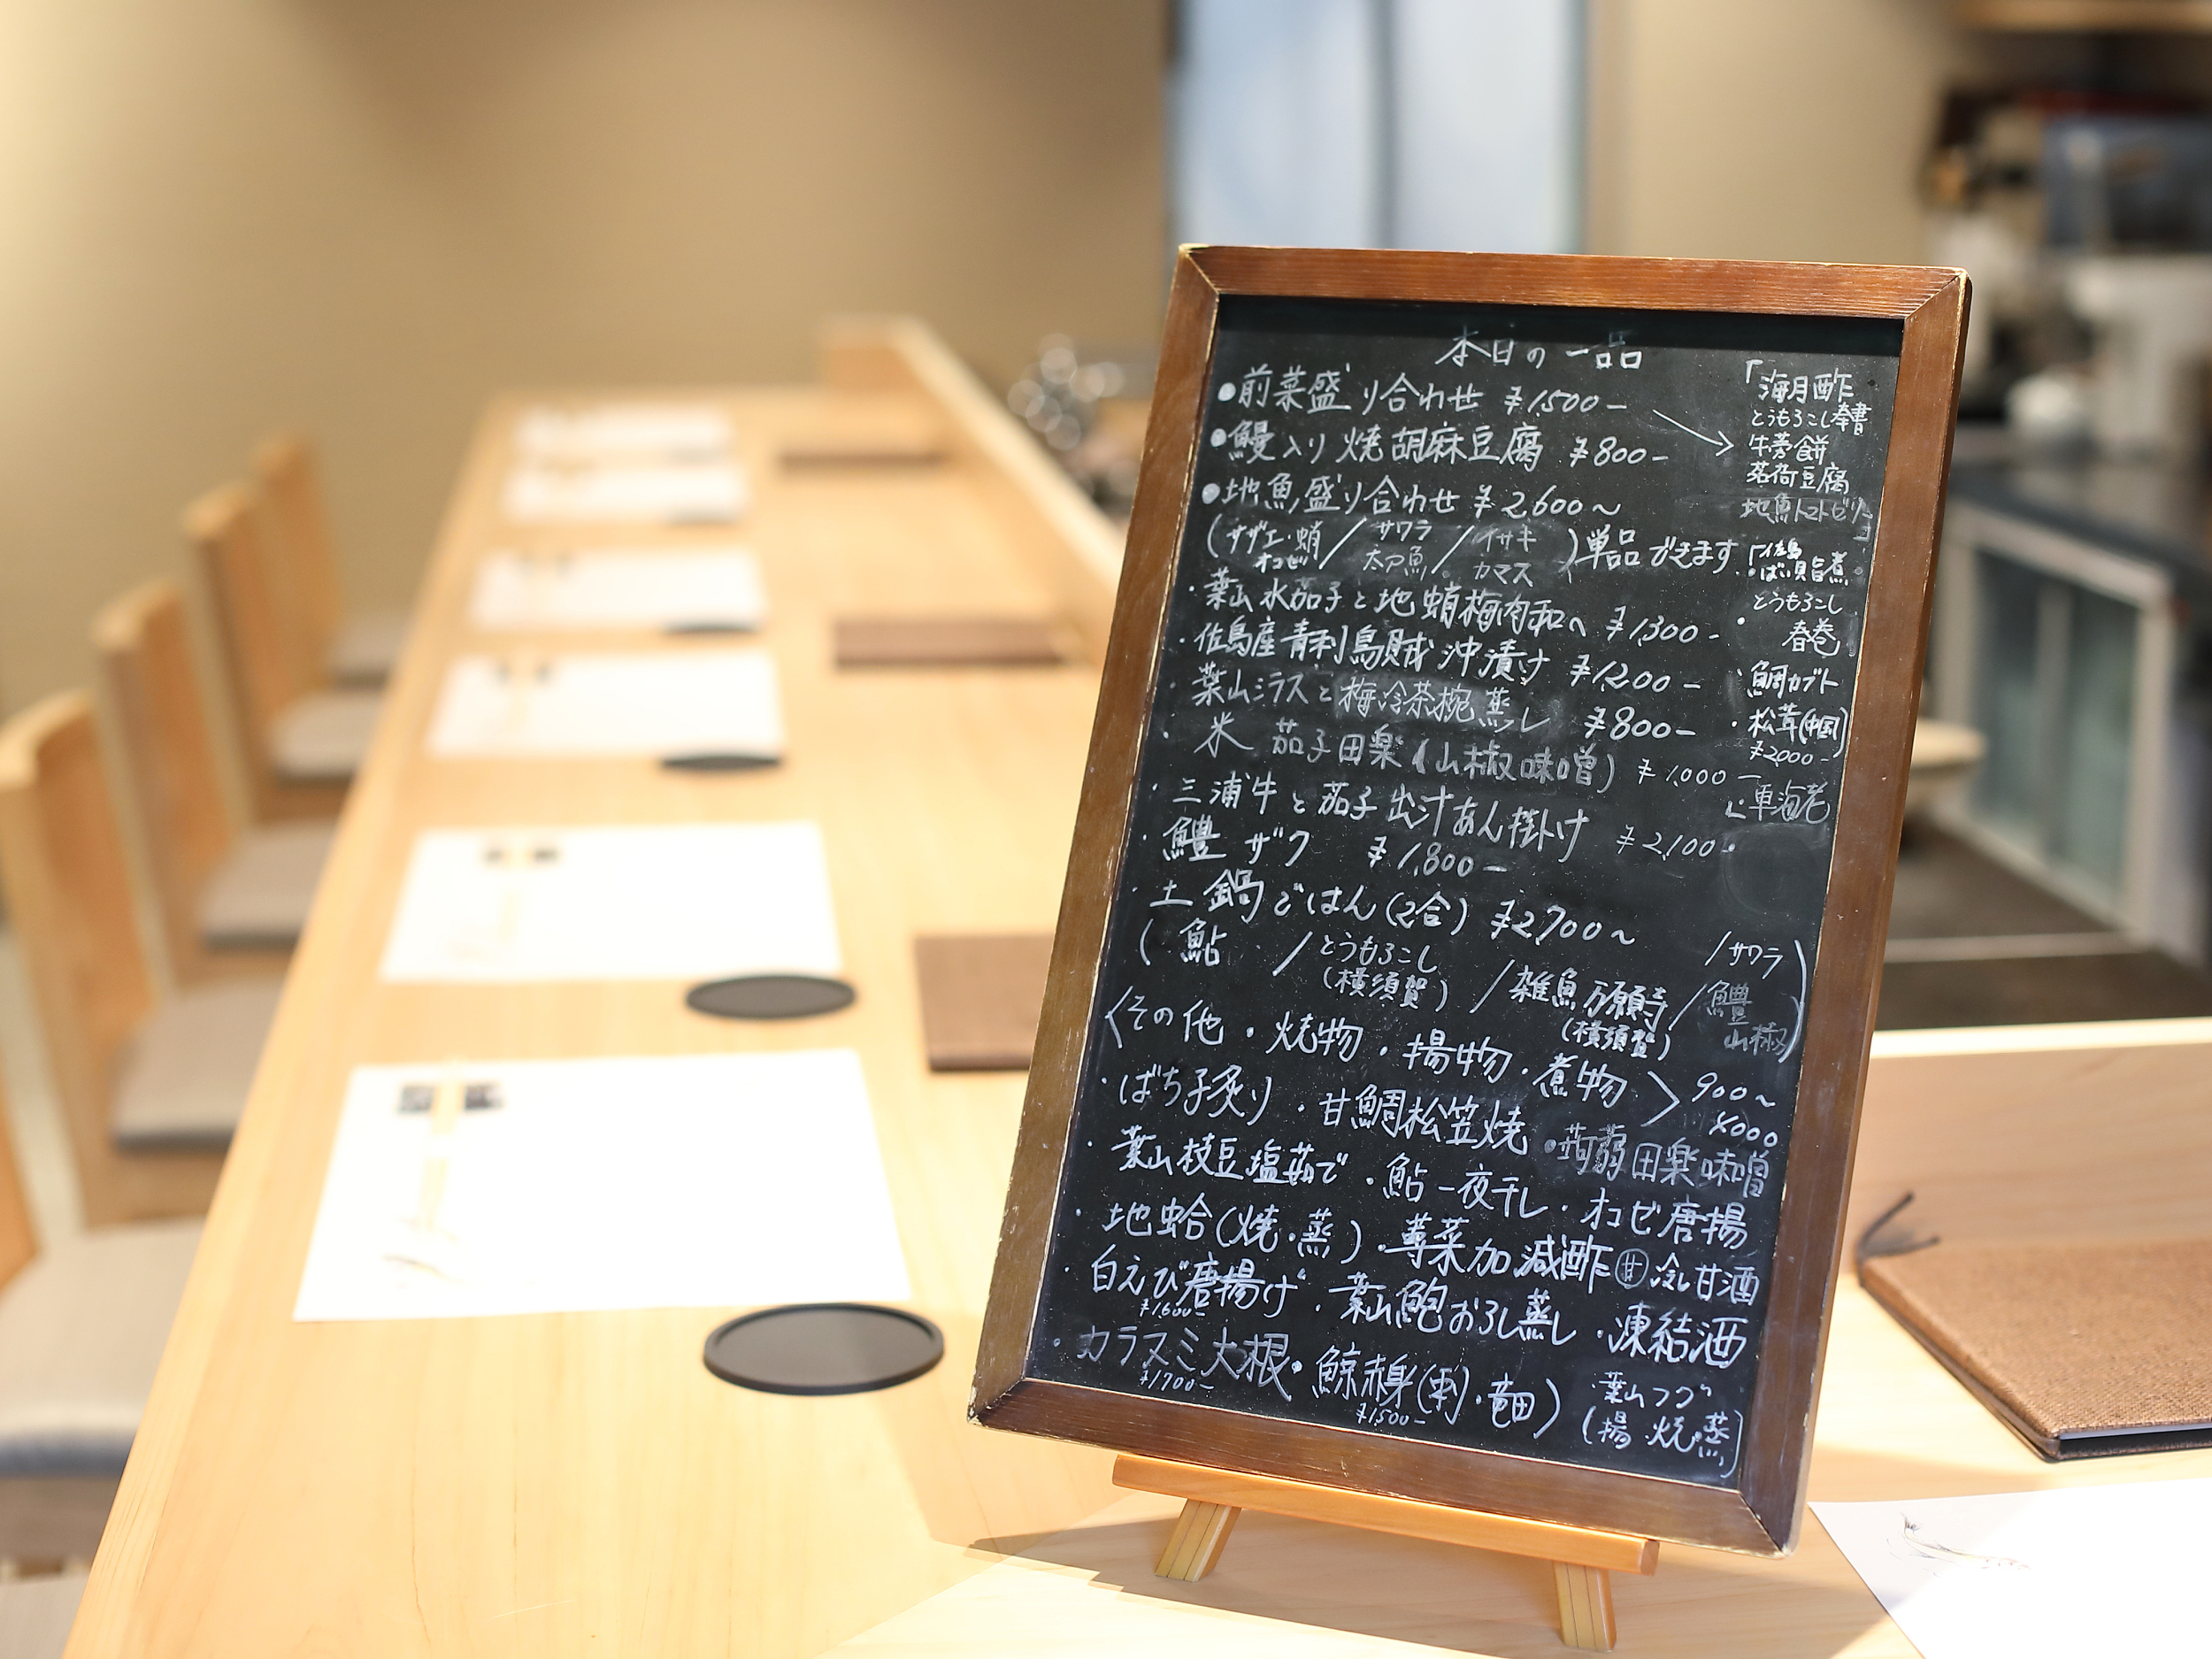 本日の一品
●前菜盛り合わせ ¥1,500-
●鰻入り焼胡麻豆腐 ¥800-
●地魚盛り合わせ ¥2,600〜
(サザエ・蛸/サワラ/イサキ)単品できます
オコゼ 太刀魚 カマス
・葉山水茄子と地蛸梅肉和へ ¥1,300-
・佐島産青利烏賊沖漬け ¥1,200-
・葉山シラスと梅冷茶椀蒸し ¥800-
・米茄子田楽(山椒味噌) ¥1,000-
・三浦牛と茄子出汁あん掛け ¥2,100-
・鱧ザク ¥1,800-
・土鍋ごはん(2合) ¥2,700〜
(鮎/とうもろこし/雑魚万願寺/鱧/サワラ)
(横須賀) (横須賀) 山椒
〈その他・焼物・揚物・煮物〉900〜
4000
・ばち子炙り・甘鯛松笠焼・蒟蒻田楽味噌
・葉山枝豆塩茹で・鮎一夜干し・オコゼ唐揚
・地蛤(焼・蒸)・蓴菜加減酢 ㊙冷し甘酒
・白えび唐揚げ・葉山鮑おろし蒸し・凍結酒
¥1,600-
・カラスミ大根・鯨赤身(刺・竜田)
¥1,700- ¥1,500-
・葉山フグ
(揚 焼 蒸)
「海月酢
とうもろこし奉書
牛蒡餅
茗荷豆腐
地魚トマトゼリー」
「佐島
ばい貝旨煮
とうもろこし
春巻
・鯛カブト
・松茸(中国)
¥2000-
車海老